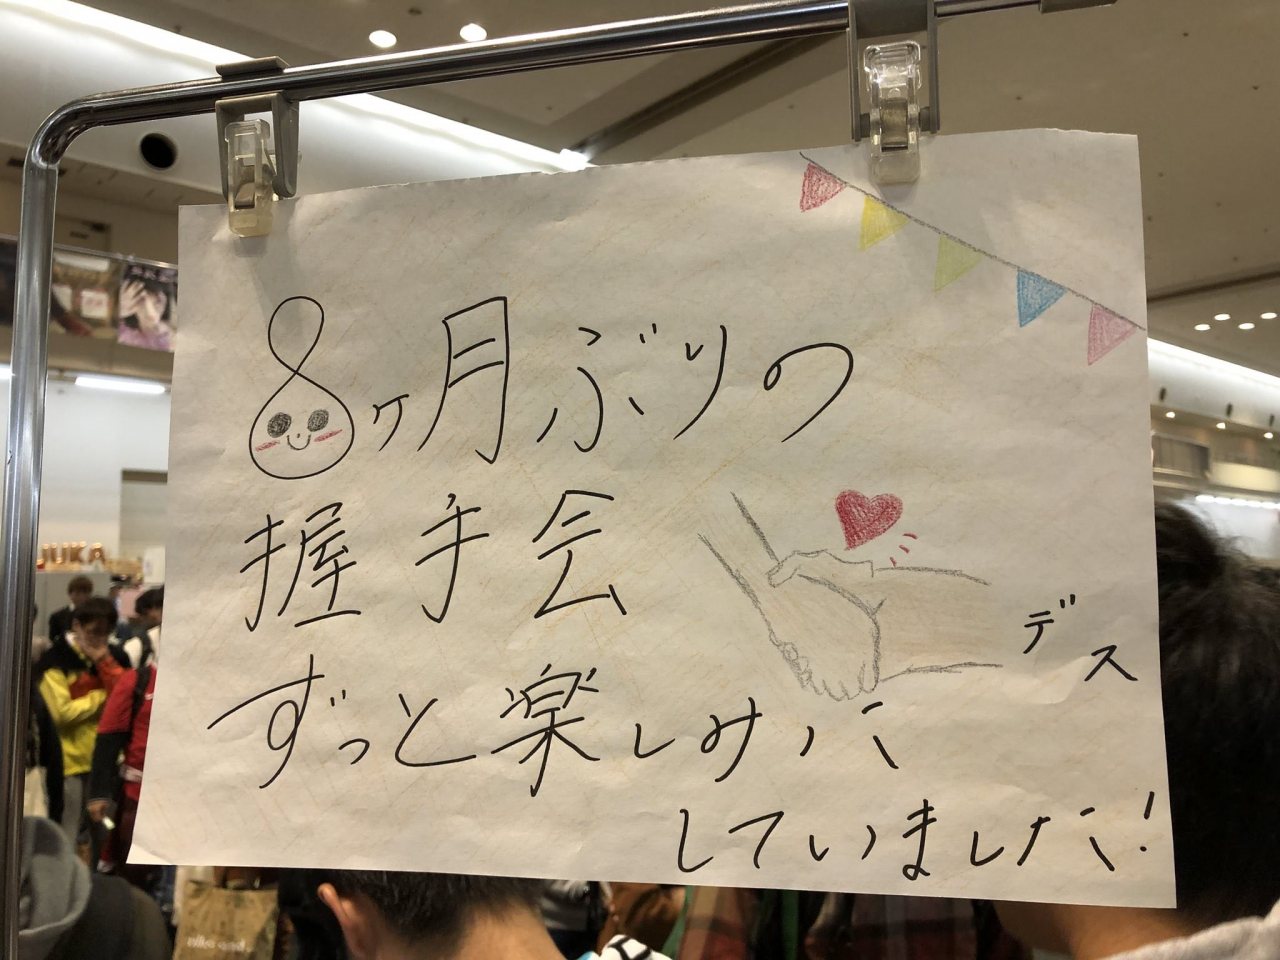 8ヶ月ぶりの
握手会
デス
ずっと楽しみに
していました!